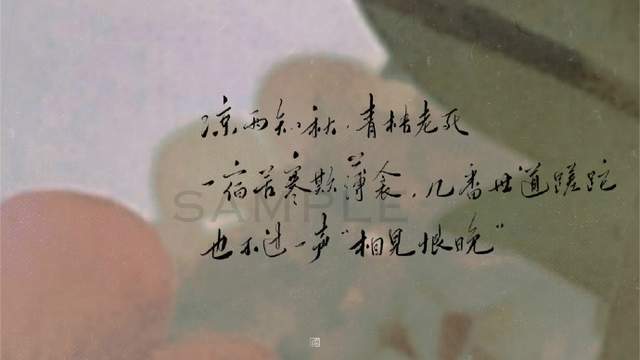 凉雨知秋，青梧老死
一宿苦寒欺薄衾，几番世道蹉跎
也不过一声“相见恨晚”
SAMPLE